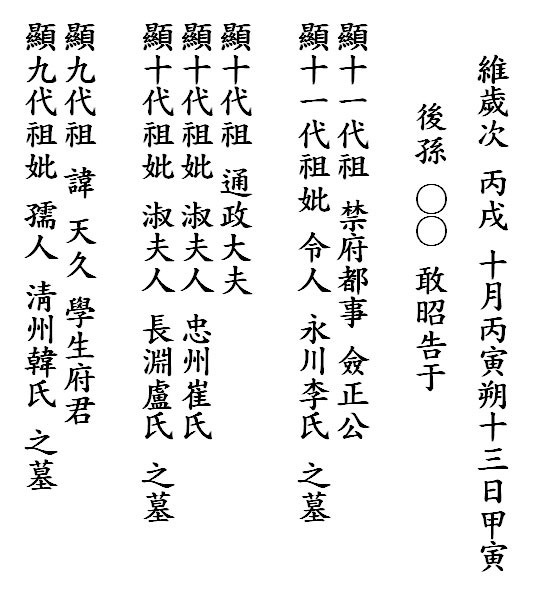 維歲次 丙戌 十月丙寅朔十三日甲寅
後孫 ○○ 敢昭告于
顯十一代祖 禁府都事 僉正公
顯十一代祖妣 令人 永川李氏 之墓
顯十代祖 通政大夫
顯十代祖妣 淑夫人 忠州崔氏
顯十代祖妣 淑夫人 長淵盧氏 之墓
顯九代祖 諱 天久 學生府君
顯九代祖妣 孺人 淸州韓氏 之墓